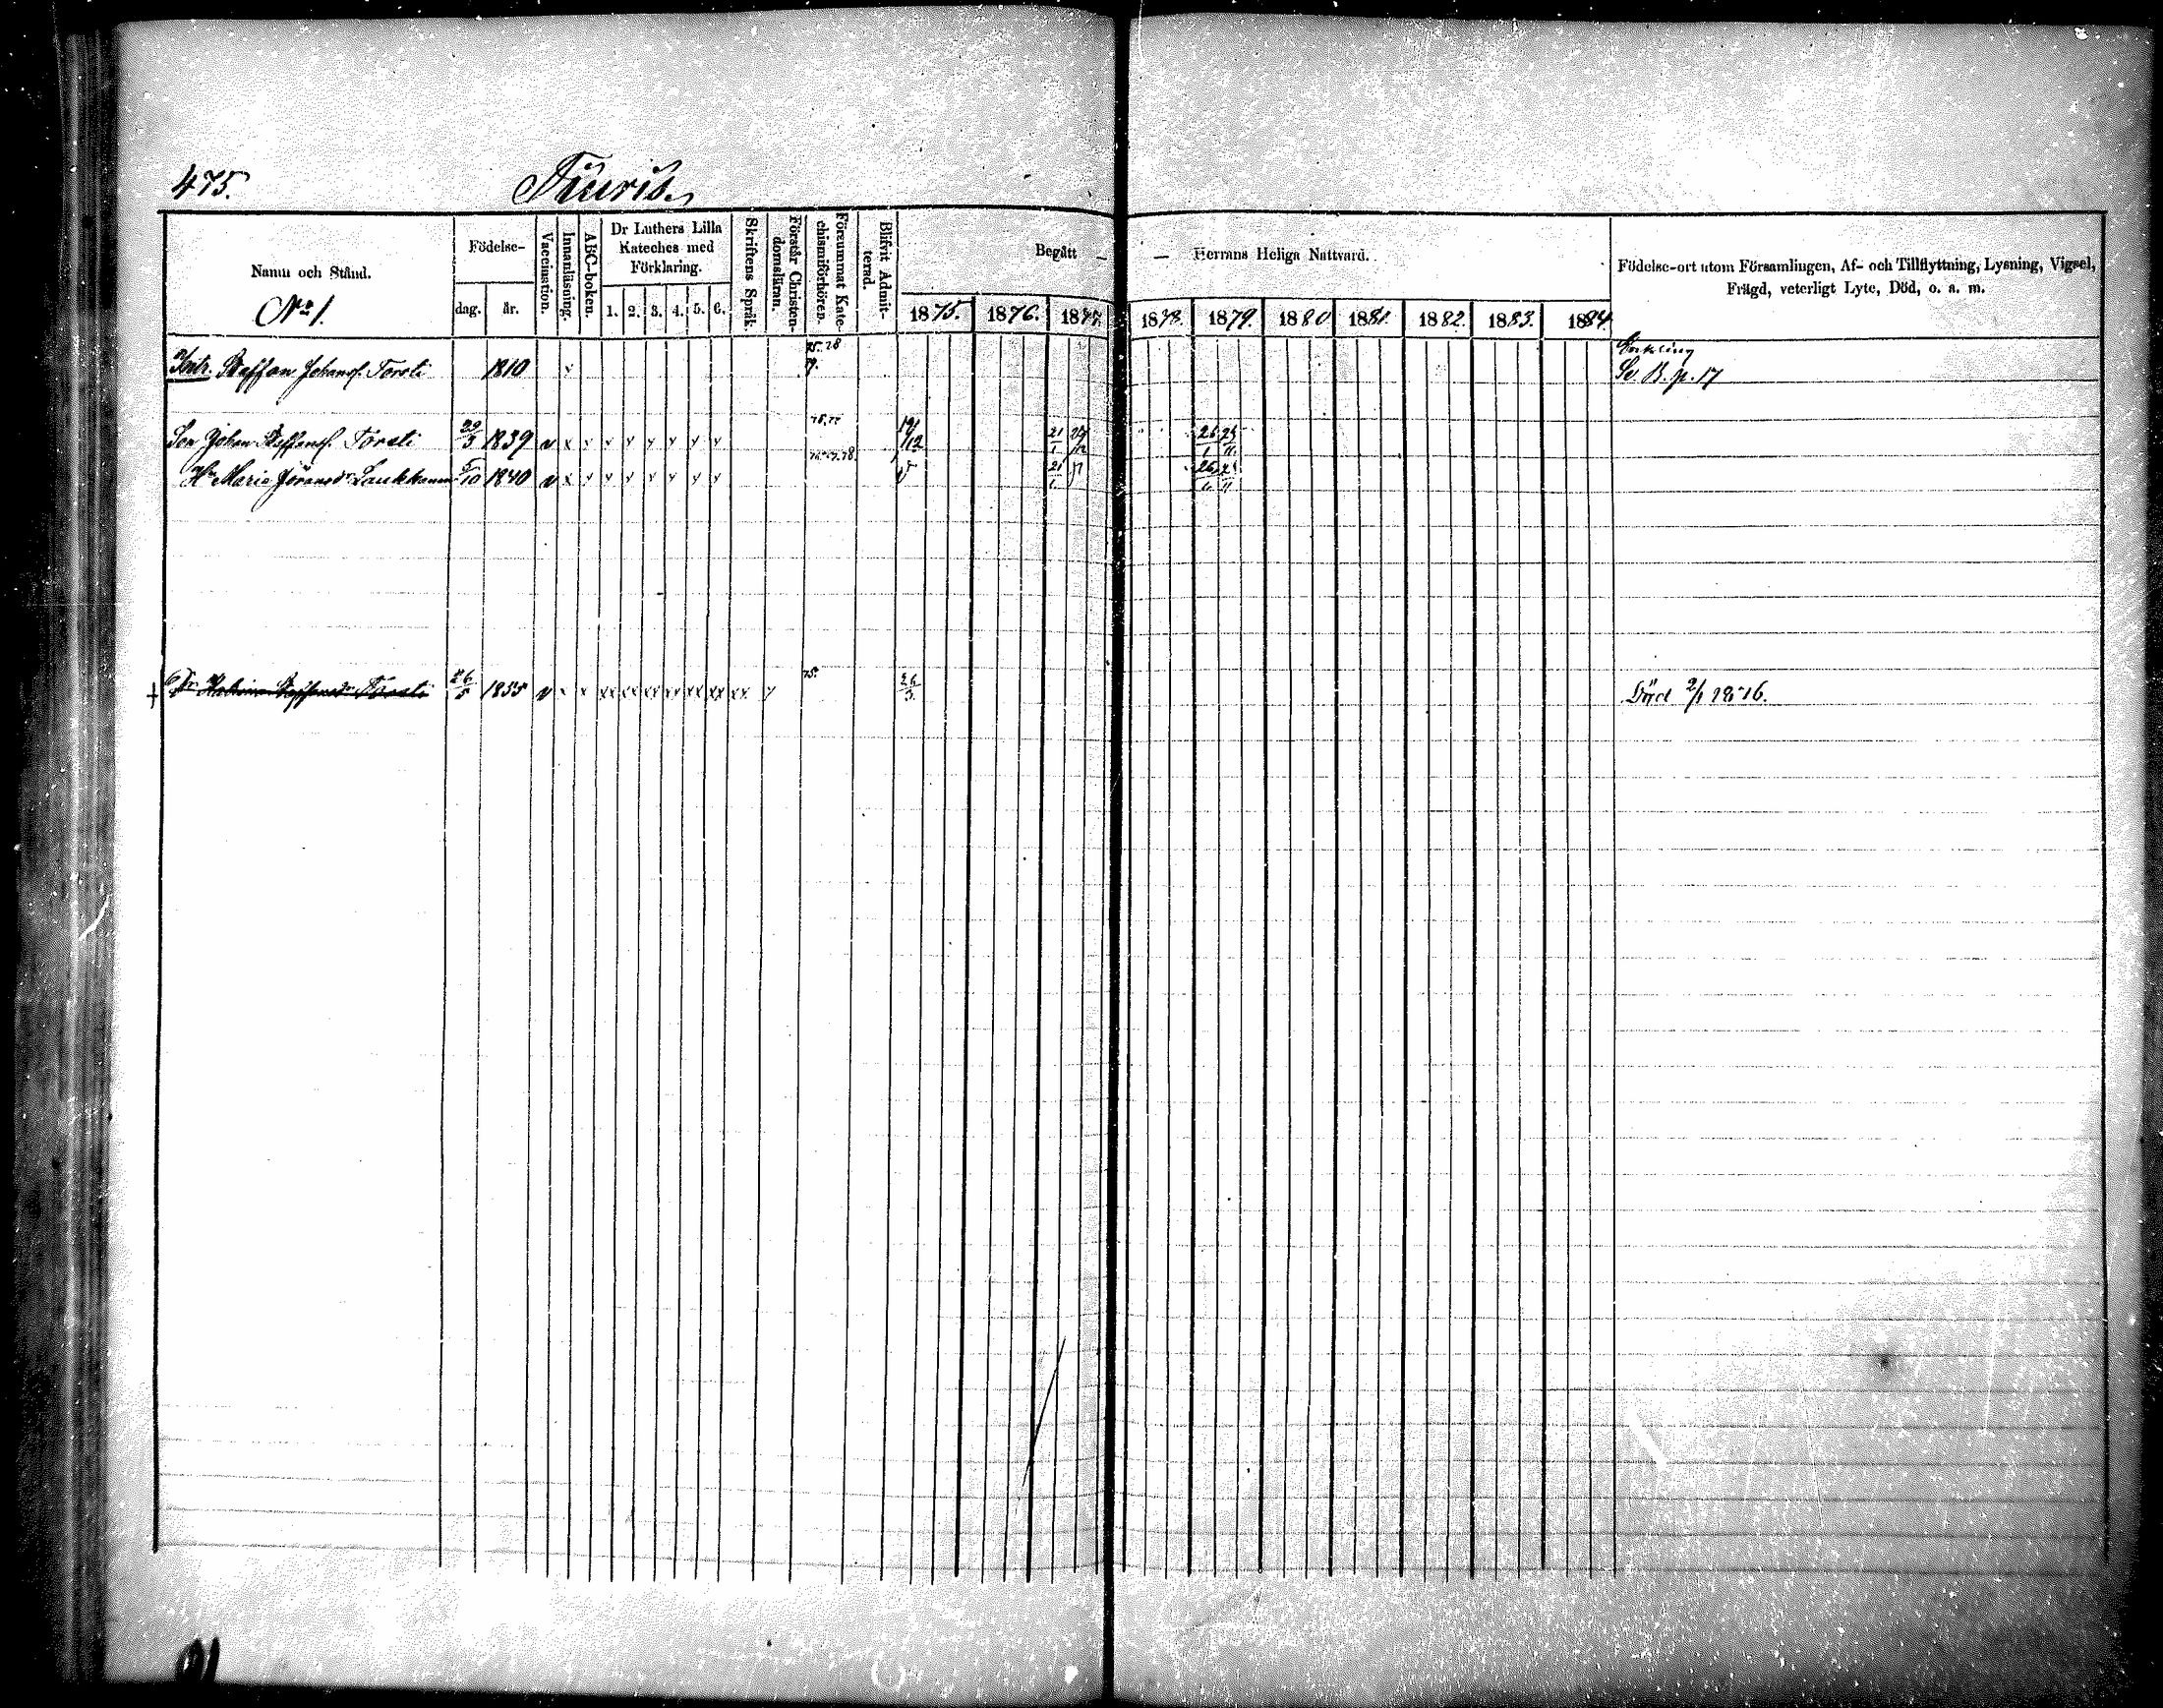 475. Tiuris.
Namn och Stånd.
No 1.
Födelse-
dag. år.
Vaccination.
Innanläsning.
ABC-boken.
Dr Luthers Lilla
Kateches med
Förklaring.
1. 2. 3. 4. 5. 6.
Skriftens Språk.
Förstår Christen-
domsläran.
Försummat Kate-
chismiförhören.
Blifvit Admit-
terad.
Begått — — Herrans Heliga Nattvard.
1875. 1876. 1877. 1878. 1879. 1880 1881. 1882. 1883. 1884.
Födelse-ort utom Församlingen, Af- och Tillflyttning, Lysning, Vigsel,
Frägd, veterligt Lyte, Död, o. a. m.
Staffan Johansf. Torsti 1810 x 75. 78 Enkling
Sv. B. p. 17
Son Johan Staffansf. Torsti 29/3 1839 v x x x x x x x x 19/12 21/1 26/1 25/11
Hu Maria Göransdr Laukkanen 5/10 1840 v x x x x x x x x 21/1 26/1
+ Dr Katrina Staffansdr Torsti 26/5 1855 v x x xx xx xx xx xx xx xx 75. 26/3. Död 2/1 1876.